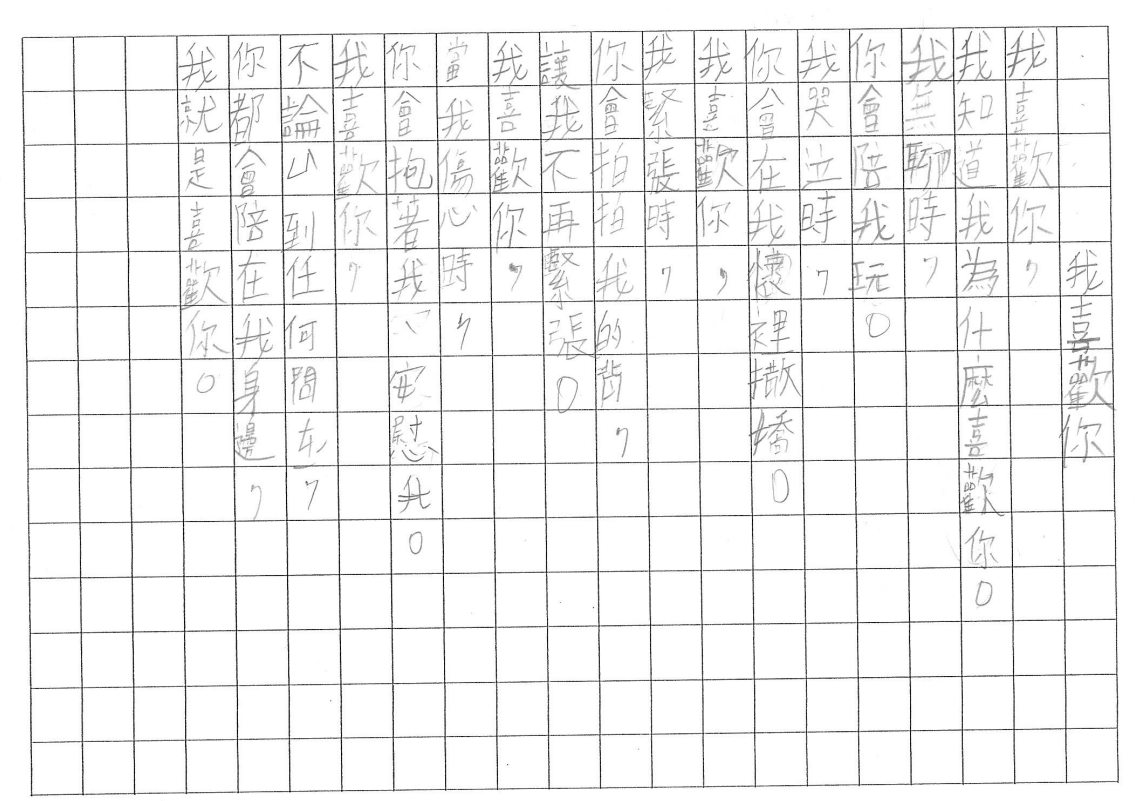 我喜歡你
我喜歡你，
我知道我為什麼喜歡你。
我無聊時，
你會陪我玩。
我哭泣時，
你會在我懷裡撒嬌。
我喜歡你，
我緊張時，
你會拍拍我的背，
讓我不再緊張。
我喜歡你，
當我傷心時，
你會抱著我、安慰我。
我喜歡你，
不論ㄩˋ到任何問ㄊㄧˊ，
你都會陪在我身邊，
我就是喜歡你。